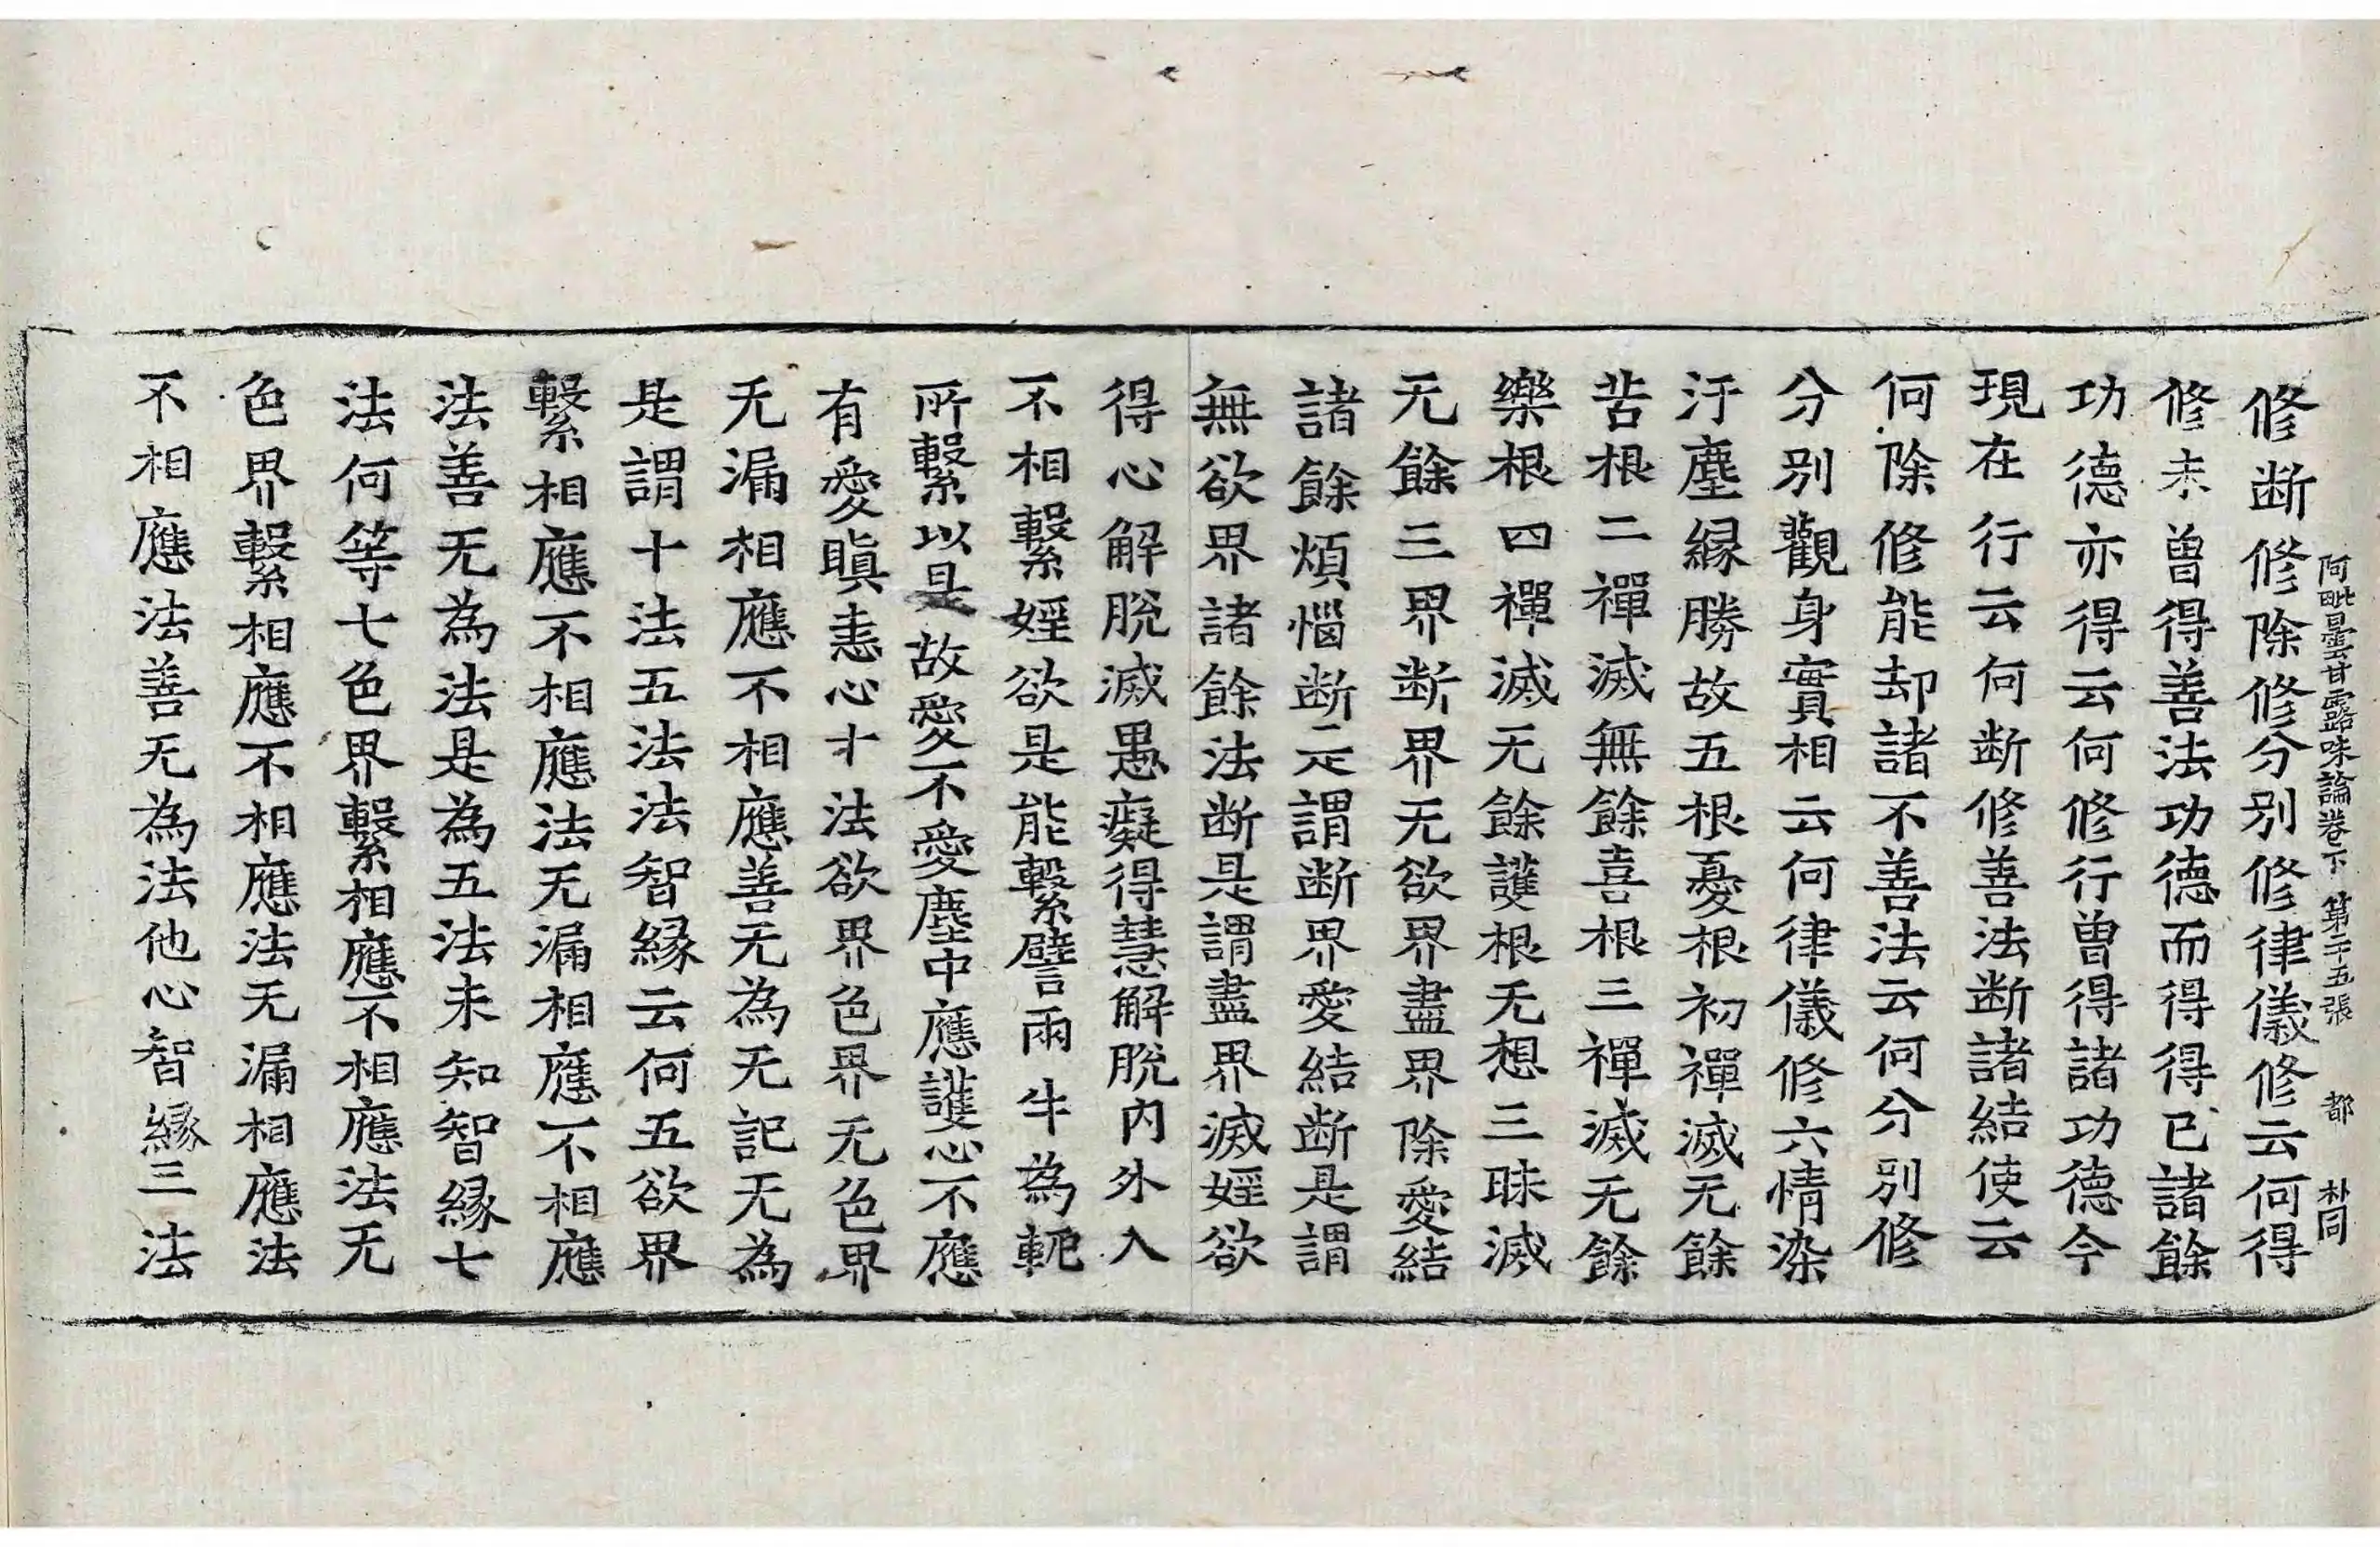 阿毗曇甘露味論卷下 第二十五張 都 朴同
修断修除修分別修律儀修云何得
修未曾得善法功德而得得已諸餘
功德亦得云何修行曾得諸功德今
現在行云何断修善法断諸結使云
何除修能却諸不善法云何分別修
分別觀身實相云何律儀修六情染
汙塵緣勝故五根憂根初禪滅无餘
苦根二禪滅無餘喜根三禪滅无餘
樂根四禪滅无餘護根无想三昧滅
无餘三界断界无欲界盡界除愛結
諸餘煩惱断是謂断界愛結断是謂
無欲界諸餘法断是謂盡界滅婬欲
得心解脫滅愚癡得慧解脫內外入
不相繫婬欲是能繫譬兩牛為軛
所繫以是故愛不愛塵中應護心不應
有愛瞋恚心十法欲界色界无色界
无漏相應不相應善无為无記无為
是謂十法五法法智緣云何五欲界
繫相應不相應法无漏相應不相應
法善无為法是為五法未知智緣七
法何等七色界繫相應不相應法无
色界繫相應不相應法无漏相應法
不相應法善无為法他心智緣三法